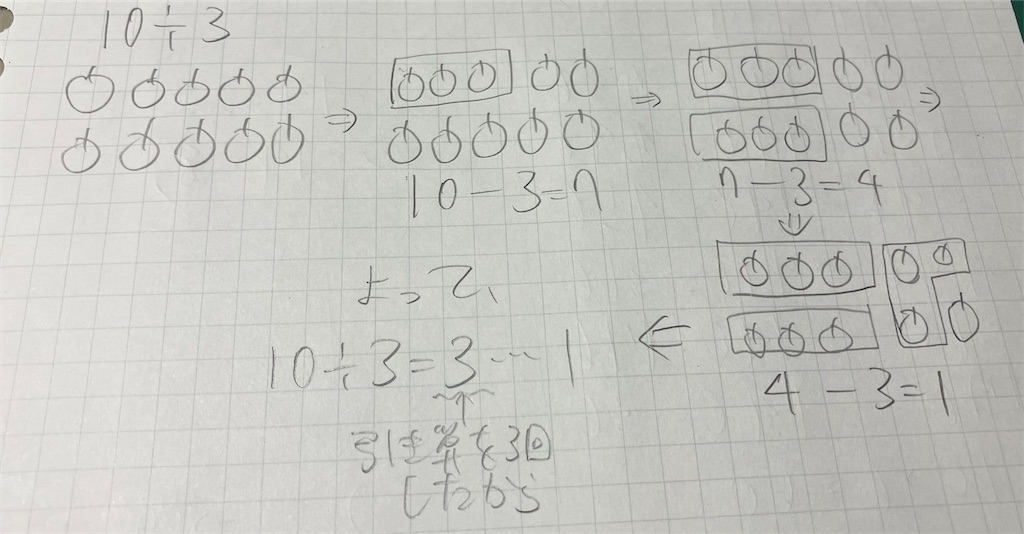 10÷3
10−3=7
7−3=4
4−3=1
よって、
10÷3=3…1
引き算を3回
したから